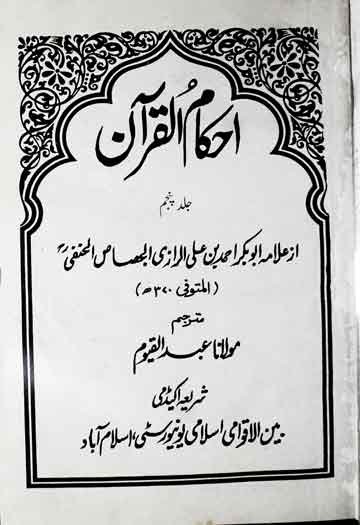 احکام القُرآن
جلد پنجم
از علامہ ابو بکر احمد بن علی الرازی الجصاص الحنفیؒ
(المتوفی ۳۷۰ھ)
مترجم
مولانا عبد القیوم
شریعہ اکیڈمی
بین الاقوامی اسلامی یونیورسٹی، اسلام آباد